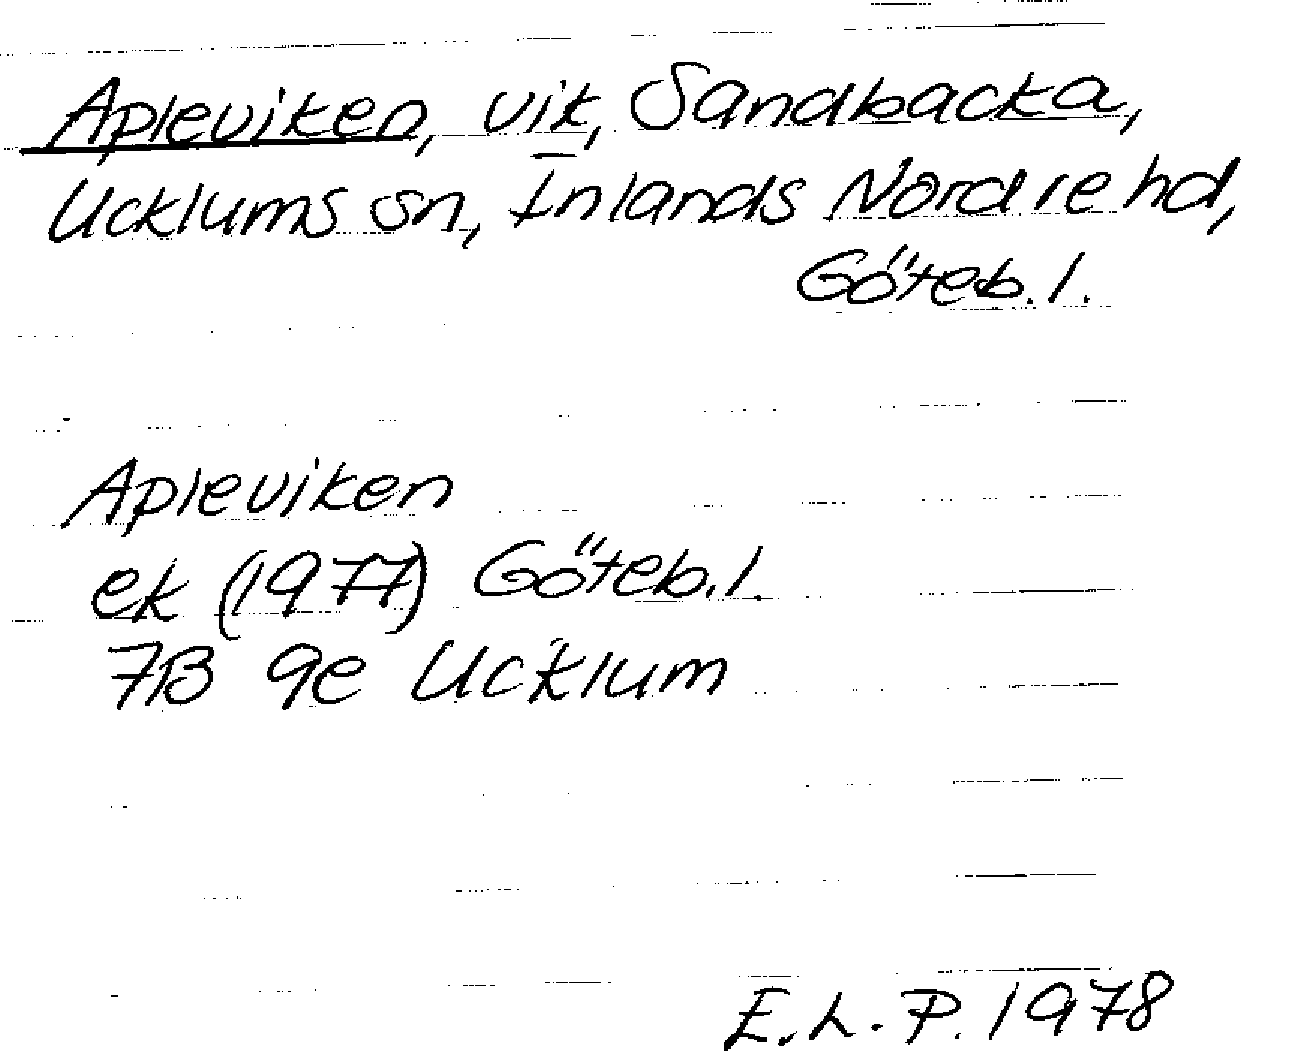 Apleviken, vik, Sandbacka,
Ucklums sn, Inlands Nordre hd,
Göteb. l.
Apleviken
ek (1977) Göteb. l.
7B 9e Ucklum
E. L. P. 1978